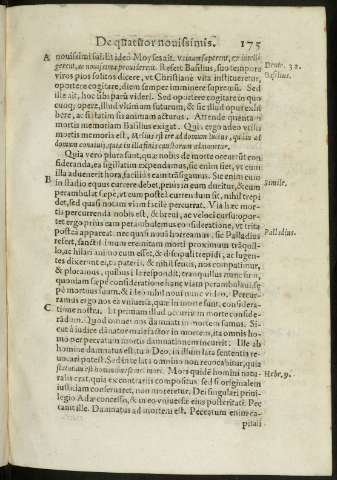 De quatuor nouissimis. 175
A nouissimis: & ideo Moyses ait. vtinam saperent, & intelli Deut. 32.
gerent, ac nouissima prouiderent. Refert Basilius, suo tempore Basilius.
viros pios solitos dicere, vt Christianè vita institueretur,
oportere cogitare, diem semper imminere supremũ. Sed
ille ait, hoc sibi parũ videri. Sed oportere cogitare in quo
cunq; opere, illud vltimum futurum, & sic illud opus exhi
bere, ac si statim sit animam acturus. Attende quantam
mortis memoriam Basilius exigat. Quis ergo adeo vtilis
mortis memoria est,
donum conatui,
Quia vero plura sunt, quæ nobis de morte occurrũt con
sideranda, ea sigillatim expendamus, sic enim fiet, vt cum
illa aduenerit hora, facilius eam trãsigamus. Sic enim cum
B in stadio equus currere debet, prius in eum ducitur, & eum simile.
perambulat sæpè, vt eum postea currens lum sit, nihil trepi
det, sed quasi notam viam facilè percurrat. Via hæc mor-
tis percurrenda nobis est, & breui, ac veloci cursu: opor-
tet ergo prius eam perambulemus consideratione, vt trita
postea appareat, nec quasi noua horreamus. sic Palladius Palladius.
refert, sanctissimum eremitam morti proximum trãquil-
lo, ac hilari animo cum esset, & discipuli trepidi, ac lugen-
tes dicerent ei,
& ploramus, quibus ille respondit, tranquillus nunc sum,
quoniam sæpè consideratione hanc viam perambulaui, sæ
pè mortuus sum, & ideo nihil noui nunc video. Percur-
ramus ergo nos ea vniuersa, quæ in morte sunt, considera-
C tione nostra. Et primum illud occurrit in morte conside-
rãdum. Quod omnes nos damnati in mortem sumus. Si-
cut à iudice dãnatur malefactor in mortem, ita omnis ho-
mo per peccatum mortis damnationem incurrit. Ille ab
homine damnatus est, tu à Deo, in illum lata sententia re-
uocari potest. Sed in te lata omnino non reuocabitur, quia
statutum est hominibus semel mori. Mori quidẽ homini natu- Hebr. 9.
rale erat, quia ex contrarijs compositus. sed si originalem
iustitiam conseruaret, non moreretur. Dei singulari priui-
legio Adæ concesso, & in eo vniuersæ eius posteritati. Pec
cant ille. Damnatus ad mortem est. Peccatum enim ca-
pitali